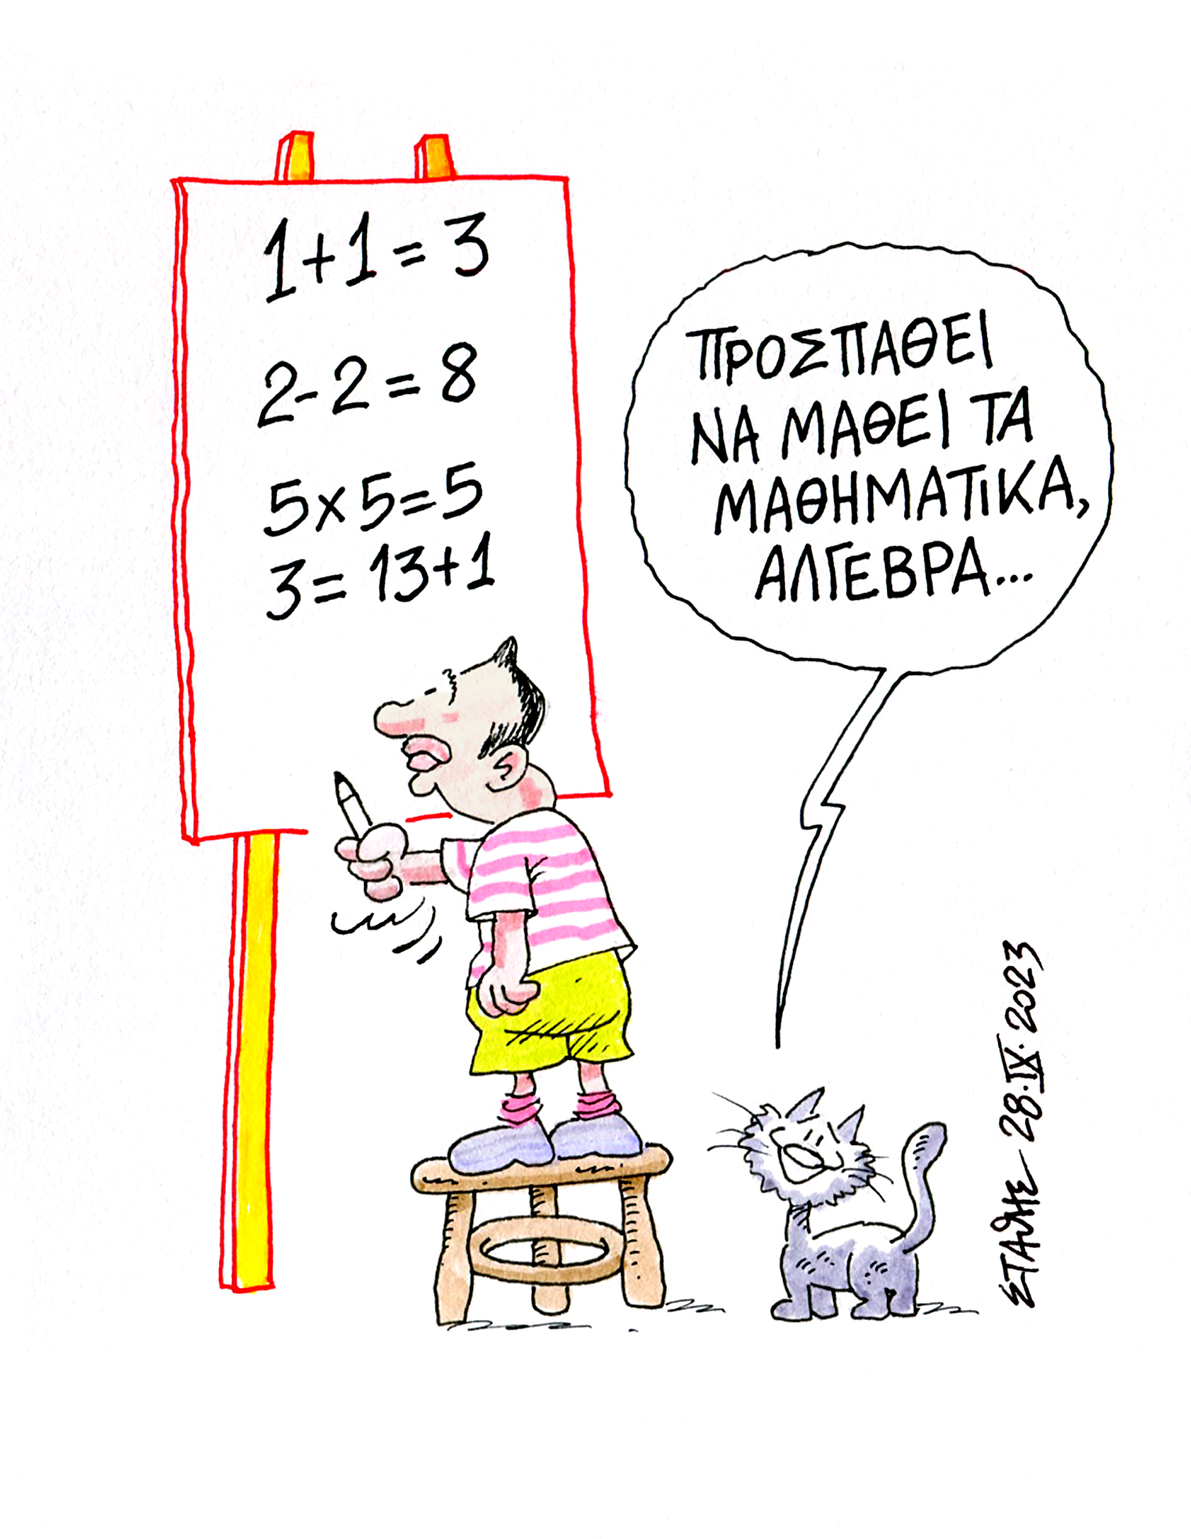 1+1=3
2-2=8
5×5=5
3=13+1
ΠΡΟΣΠΑΘΕΙ
ΝΑ ΜΑΘΕΙ ΤΑ
ΜΑΘΗΜΑΤΙΚΑ,
ΑΛΓΕΒΡΑ...
ΣΤΑΘΗΣ 28·IX·2023